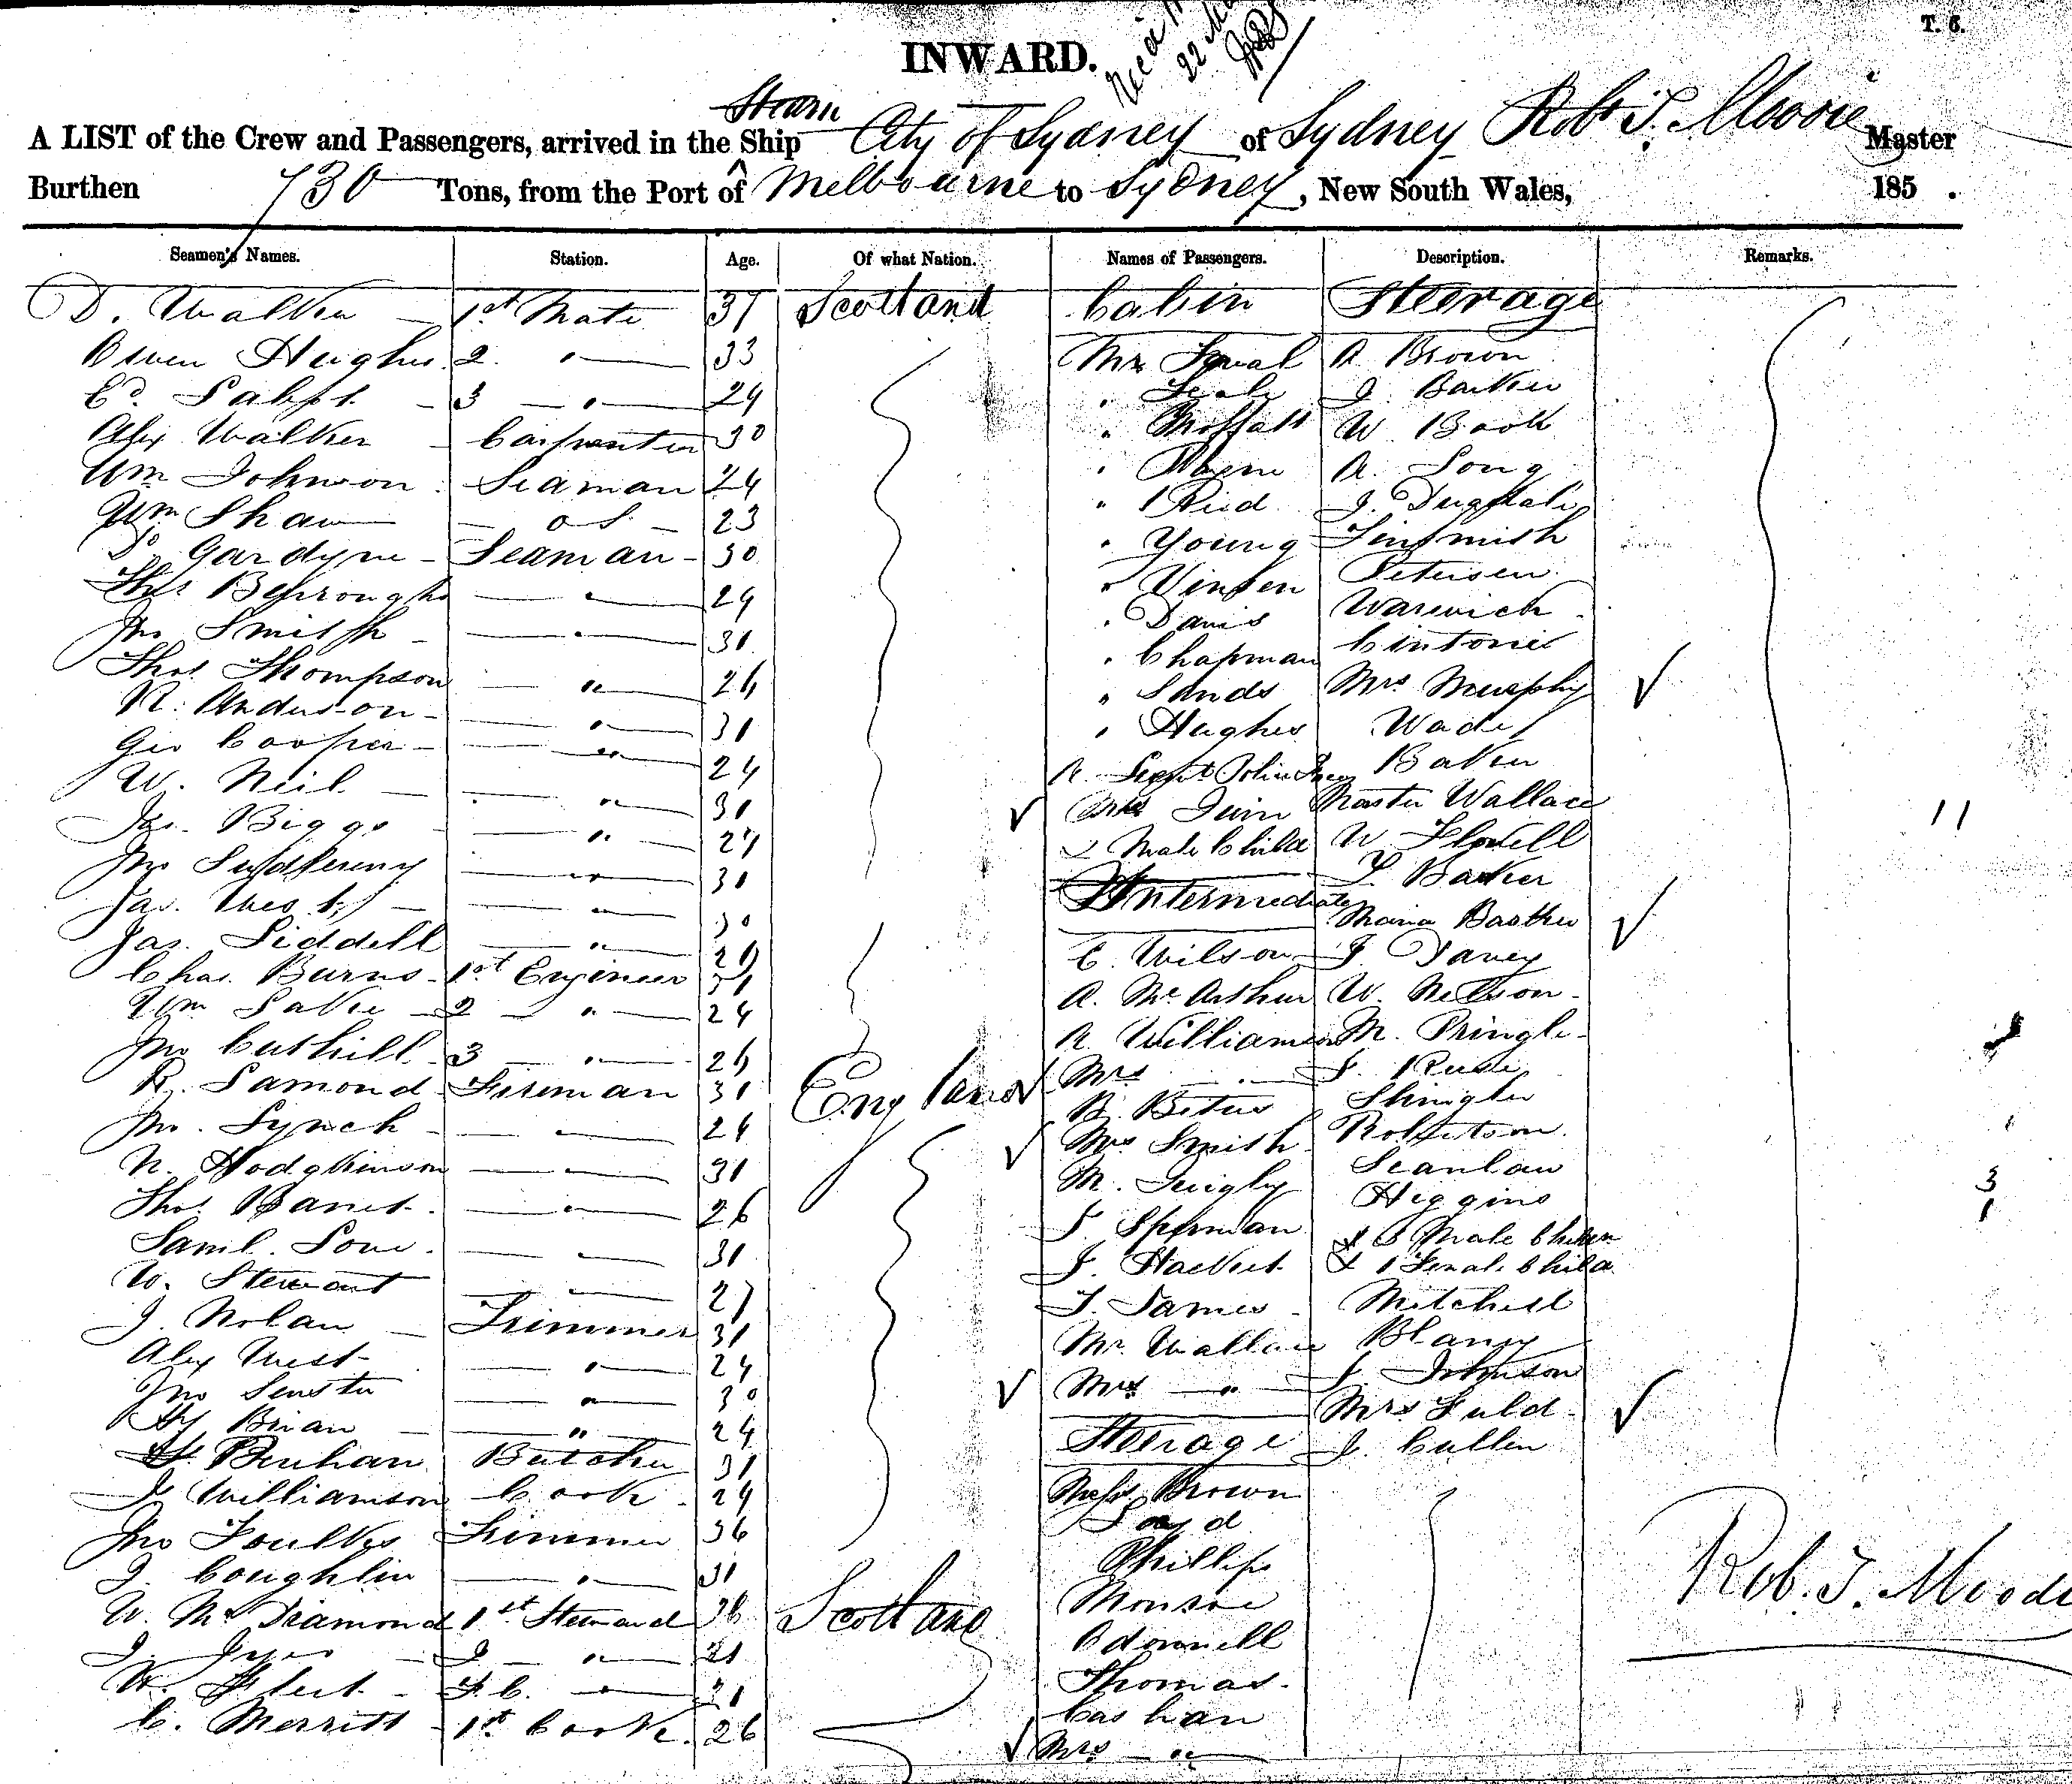 T. 6.
INWARD.
22
Steam
A LIST of the Crew and Passengers, arrived in the Ship City of Sydney of Sydney Rob T. Moodie Master
Burthen 730 Tons, from the Port of Melbourne to Sydney, New South Wales, 185 .
Seamen's Names. Station. Age. Of what Nation. Names of Passengers. Description. Remarks.
D. Walker 1st Mate 37 Scotland Cabin Steerage
Owen Hughes 2. " 33 Mr A Brown
Ed. 3 " 24 " J. Barker
Alex Walker Carpenter 30 " Moffatt W Book
Wm Johnson Seaman 24 " A. Long
Wm Shaw O S. 23 " Reid J. Dugdale
Do Gardyne Seaman 30 " Young
Thos Burroughs " 24 " Vinsen Petersen
Jno Smith " 31 " Davis Warwick
Thos Thompson " 26 " Chapman
R. Anderson " 31 " Sands Mrs Murphy
Geo Cooper " 24 " Hughes Wade
W. Neil " 31 Baker
Jas. Biggs " 27 Mrs Master Wallace 11
Jno " 31 2 Male Child W
Jas. West " 30 Intermediate Barker
Jas. Liddell " 29 Maria
Chas. Burns 1st Engineer 31 E. Wilson J. Davey
Wm 2 " 24 A. McArthur W. Nelson
Jno Cuthill 3 " 26 R Williamson M. Pringle
R. Lamond Fireman 31 England Mrs " J.
Jno. Lynch " 24 B.
N. Hodgkinson " 31 Mrs Smith Robertson
Thos " 26 M. Quigley Scanlan 3
Saml. Love " 31 J. Higgins 1
W. Stewart " 27 J. Hackett & 3 Male Children
J Nolan Trimmer 31 J. James & 1 Female Child
Alex West " 24 Mr. Wallace Mitchell
Jno " 30 Mrs " Blaney
Hy Brian " 24 Steerage J. Johnson
Benham Butcher 31 Mrs Fuld
J Williamson Cook 24 Messrs Brown J. Cullen
Jno Foulkes Trimmer 36
J. Coughlin " 31 Phillips Rob. T. Moodie
W. McDiamond 1st Steward 36 Scotland Monroe
J. 2 " 21 Odonnell
F.C. " 21 Thomas
C. Merritt 1st Cook 26 Cashan
Mrs "